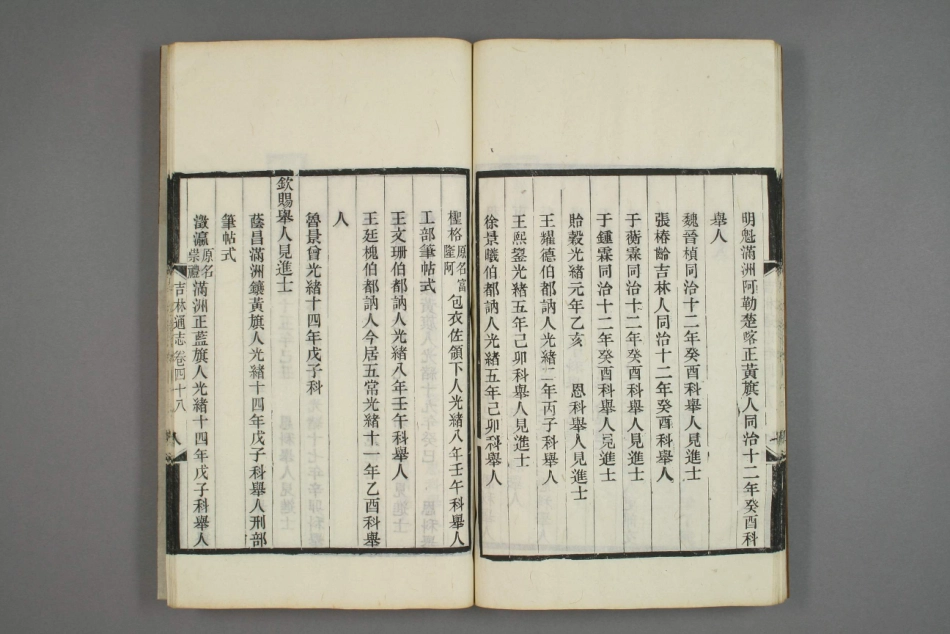 明魁滿洲阿勒楚喀正黃旗人同治十二年癸酉科
舉人
魏晉楨同治十二年癸酉科舉人見進士
張椿齡吉林人同治十二年癸酉科舉人
于蘅霖同治十二年癸酉科舉人見進士
于鍾霖同治十二年癸酉科舉人見進士
貽穀光緒元年乙亥 恩科舉人見進士
王耀德伯都訥人光緒二年丙子科舉人
王熙鋆光緒五年己卯科舉人見進士
徐景曦伯都訥人光緒五年己卯科舉人
檉格原名富隆阿包衣佐領下人光緒八年壬午科舉人
工部筆帖式
王文珊伯都訥人光緒八年壬午科舉人
王廷槐伯都訥人今居五常光緒十一年乙酉科舉
人
魯景曾光緒十四年戊子科
欽賜舉人見進士
蔭昌滿洲鑲黃旗人光緒十四年戊子科舉人刑部
筆帖式
瀓瀛原名崇禮滿洲正藍旗人光緒十四年戊子科舉人
吉林通志卷四十八 八